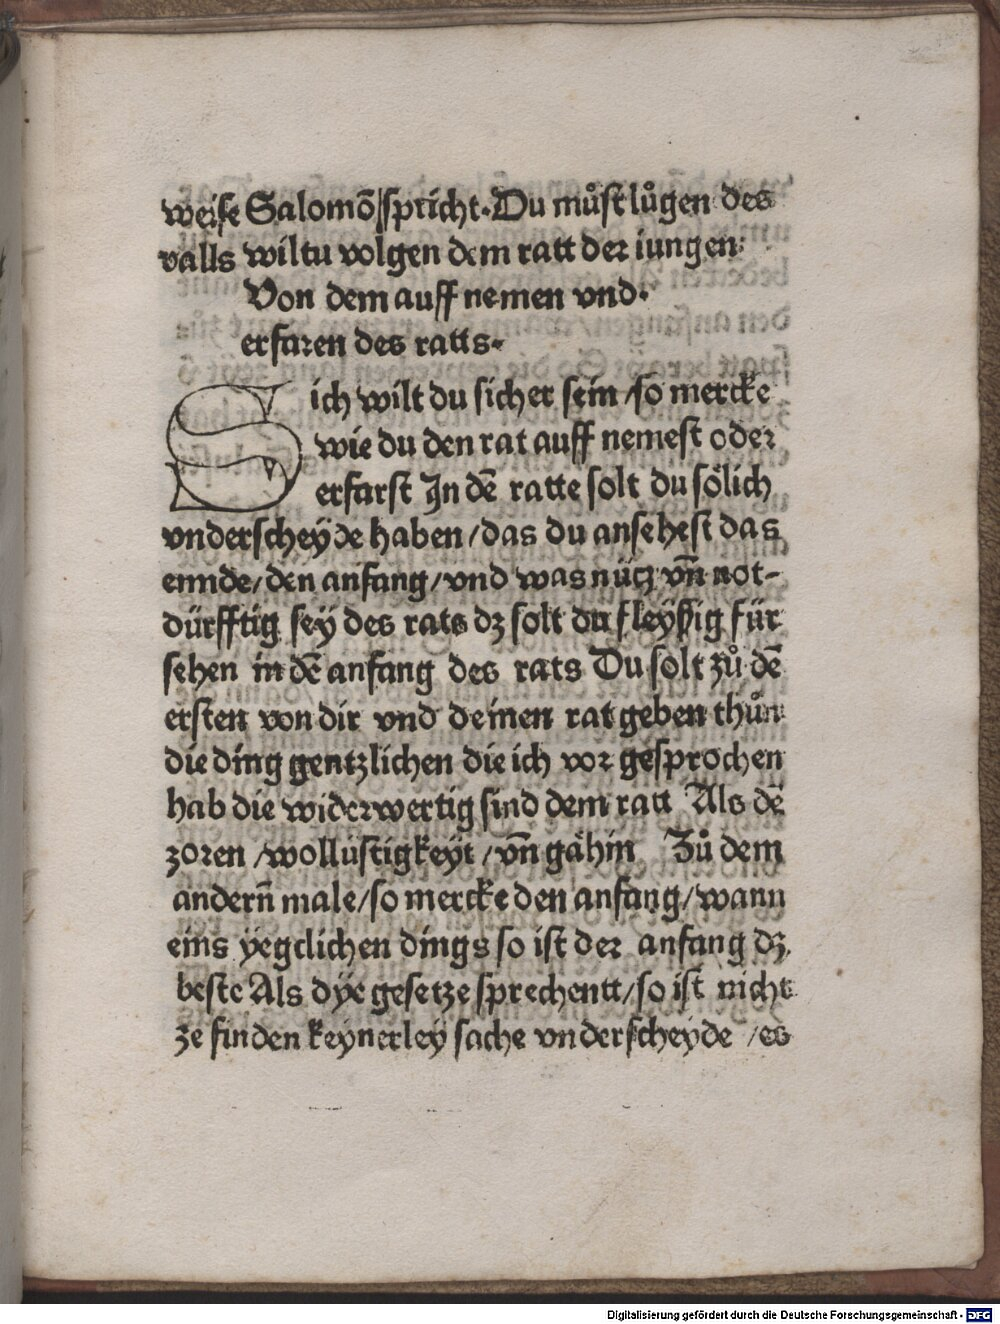 weise Salomō spricht. Du můst lůgen des
valls wiltu volgen dem ratt der iungen.
Von dem auff nemen vnd.
erfaren des ratts.
Sich wilt du sicher sein /so mercke
wie du den rat auff nemest oder
erfarst In dē ratte solt du sölich
vnderscheyde haben /das du ansehest das
ennde/den anfang/vnd was nücz vn̄ not-
dürfftig sey des rats dz solt du fleyßig für
sehen in dē anfang des rats Du solt zů dē
ersten von dir vnd deinen rat geben thůn
die ding gentzlichen die ich vor gesprochen
hab die widerwertig sind dem ratt Als dē
zoren /wollüstigkeyt /vn̄ gähin Zů dem
andern̄ male/so mercke den anfang/wann
eins yegclichen dings so ist der anfang dz
beste Als dye gesetze sprechentt/so ist nicht
ze finden keynerley sache vnderscheyde /es
Digitalisierung gefördert durch die Deutsche Forschungsgemeinschaft - DFG